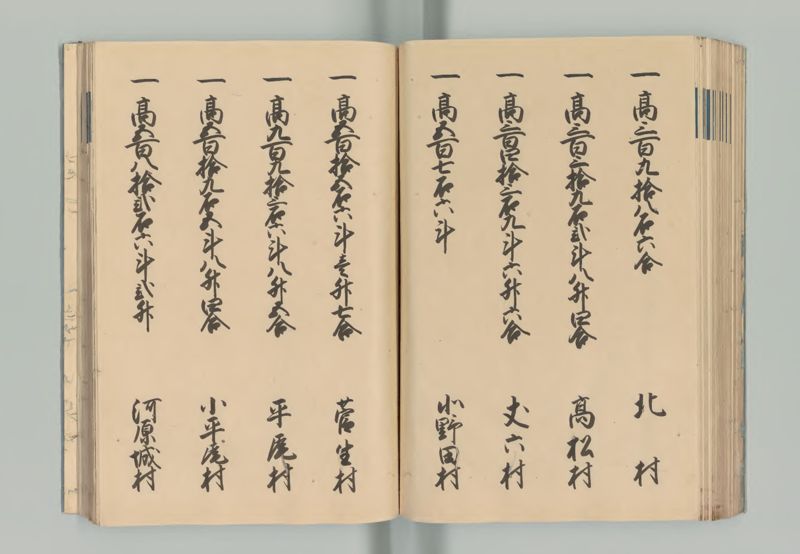 一 高三百九拾八石六合 北村
一 高三百三拾九石弐斗八升四合 高松村
一 高三百四拾三石九斗六升六合 丈六村
一 高五百七石六斗 小野田村
一 高五百拾五石六斗壱升七合 菅生村
一 高九百九拾三石六斗八升五合 平尾村
一 高五百拾九石五斗八升四合 小平尾村
一 高五百八拾弐石六斗弐升 河原城村